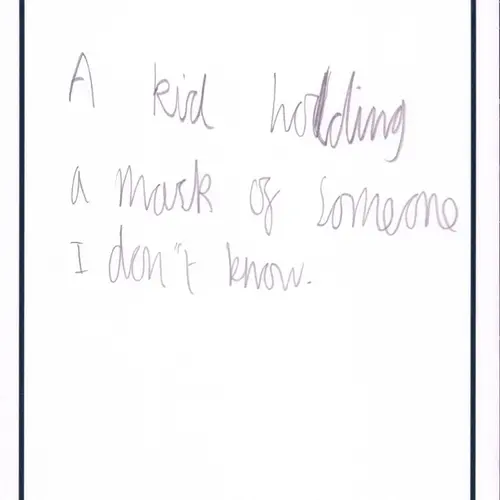 A kid holding
a mark of someone
I don"t know.